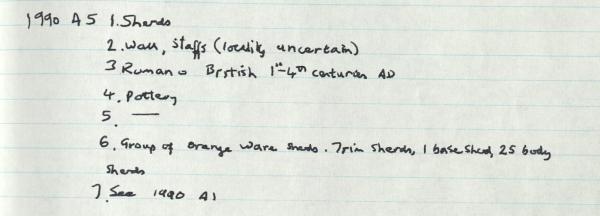 1990 A5 1. Sherds
2. Wall, Staffs (locality uncertain)
3 Romano British 1st-4th centuries AD
4. Pottery
5. —
6. Group of orange ware sherds. 7 rim sherds, 1 base sherd, 25 body
sherds
7. See 1990 A1